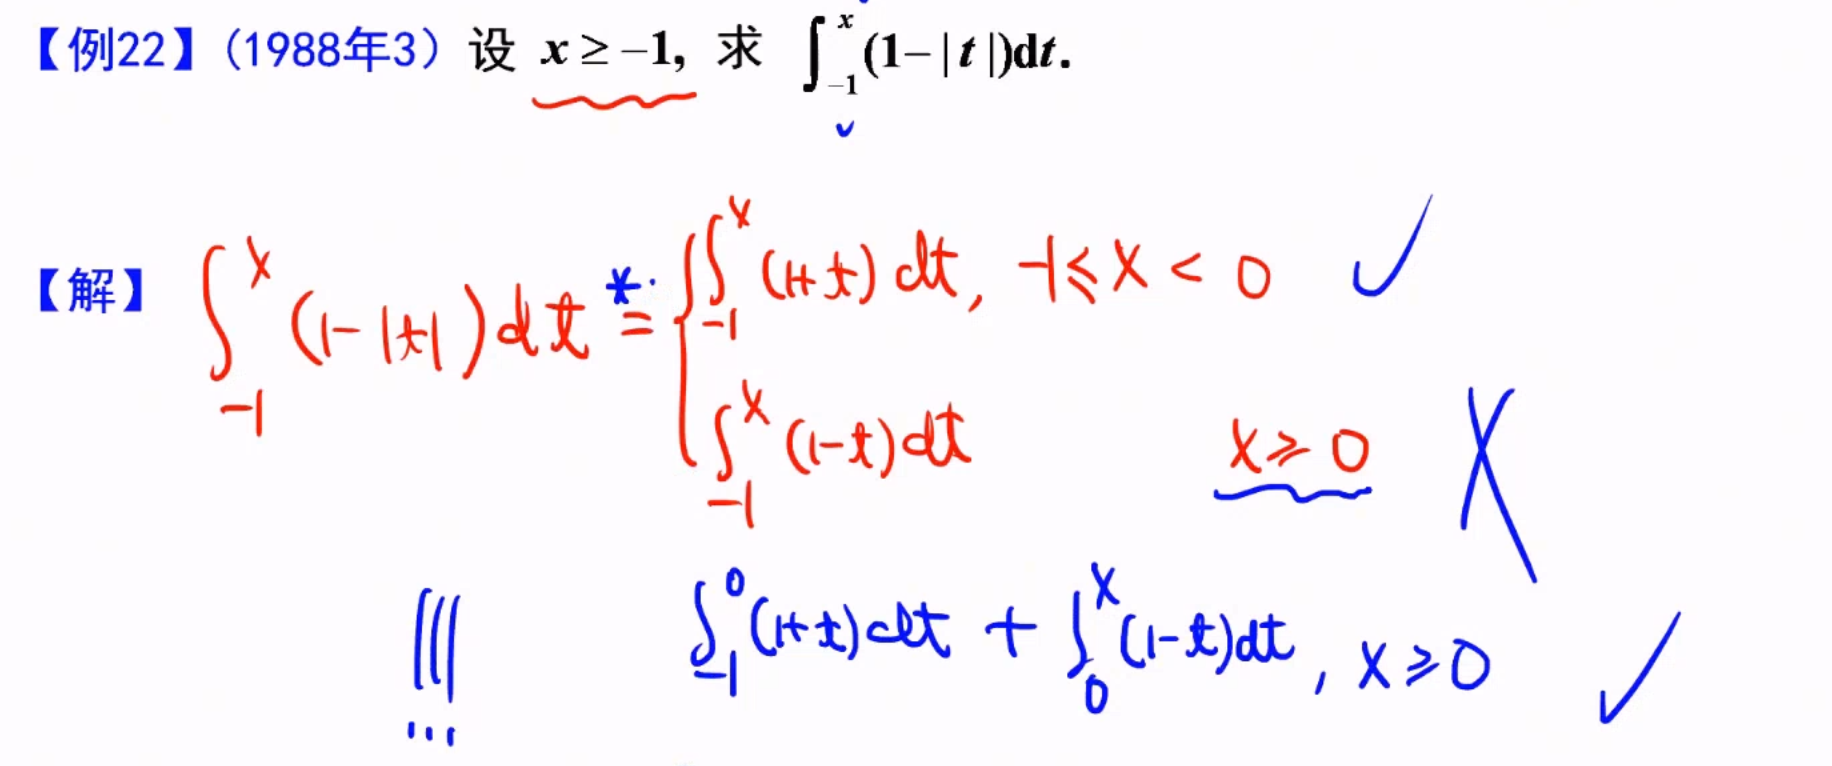 【例22】(1988年3) 设 x ≥ −1, 求 ∫_{−1}^{x} (1−|t|)dt.
【解】 ∫_{−1}^{x} (1−|t|)dt *= { ∫_{−1}^{x} (1+t)dt, −1≤x<0 ✓
∫_{−1}^{x} (1−t)dt x≥0 X
!!! ∫_{−1}^{0} (1+t)dt + ∫_{0}^{x} (1−t)dt, x≥0 ✓